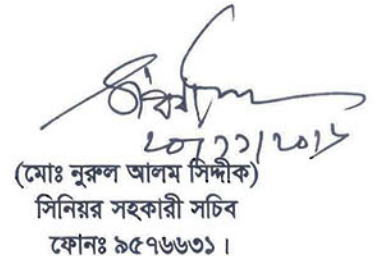 ২০/১১/২০১৮
(মোঃ নুরুল আলম সিদ্দীক)
সিনিয়র সহকারী সচিব
ফোনঃ ৯৫৭৬৬৩১ ।